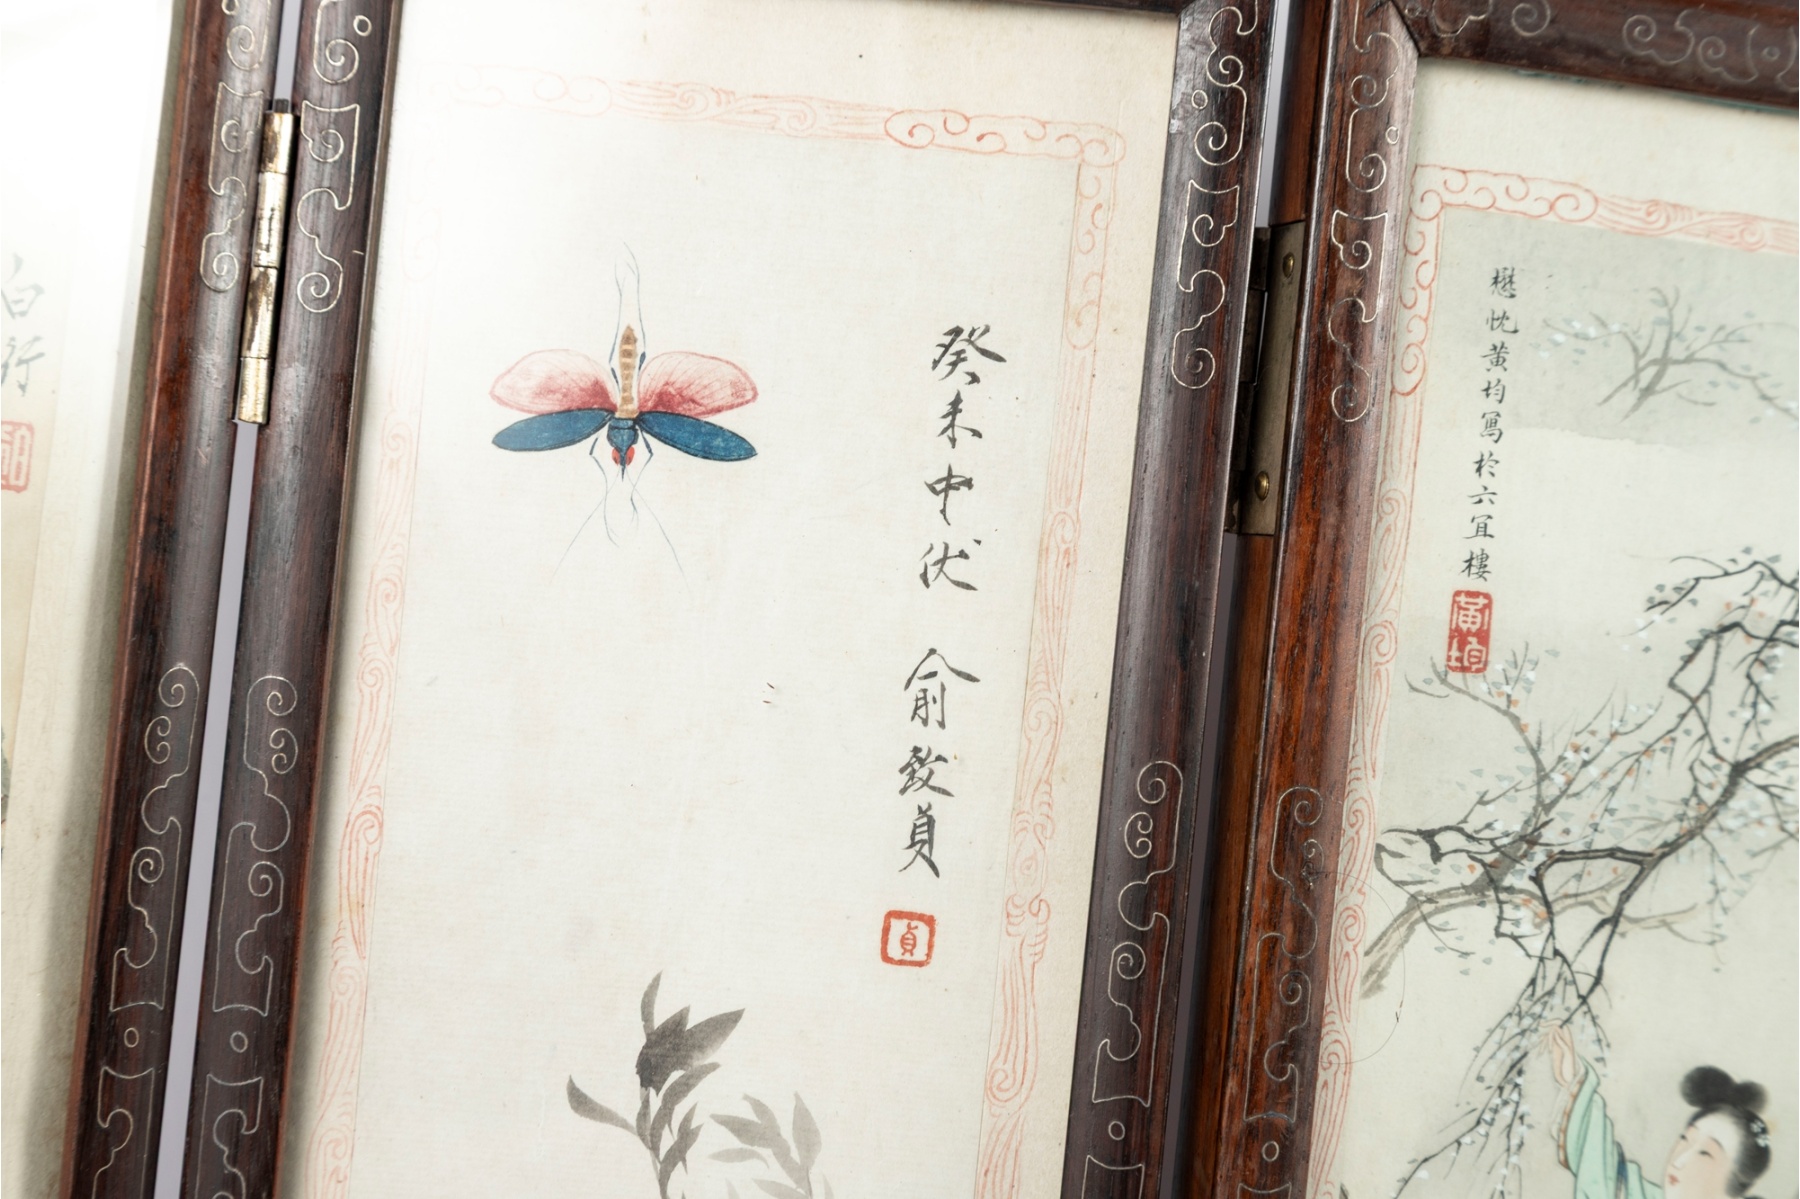 懋忱黃均寫於六宜樓
黃均
癸未中伏 俞致貞
貞
白行